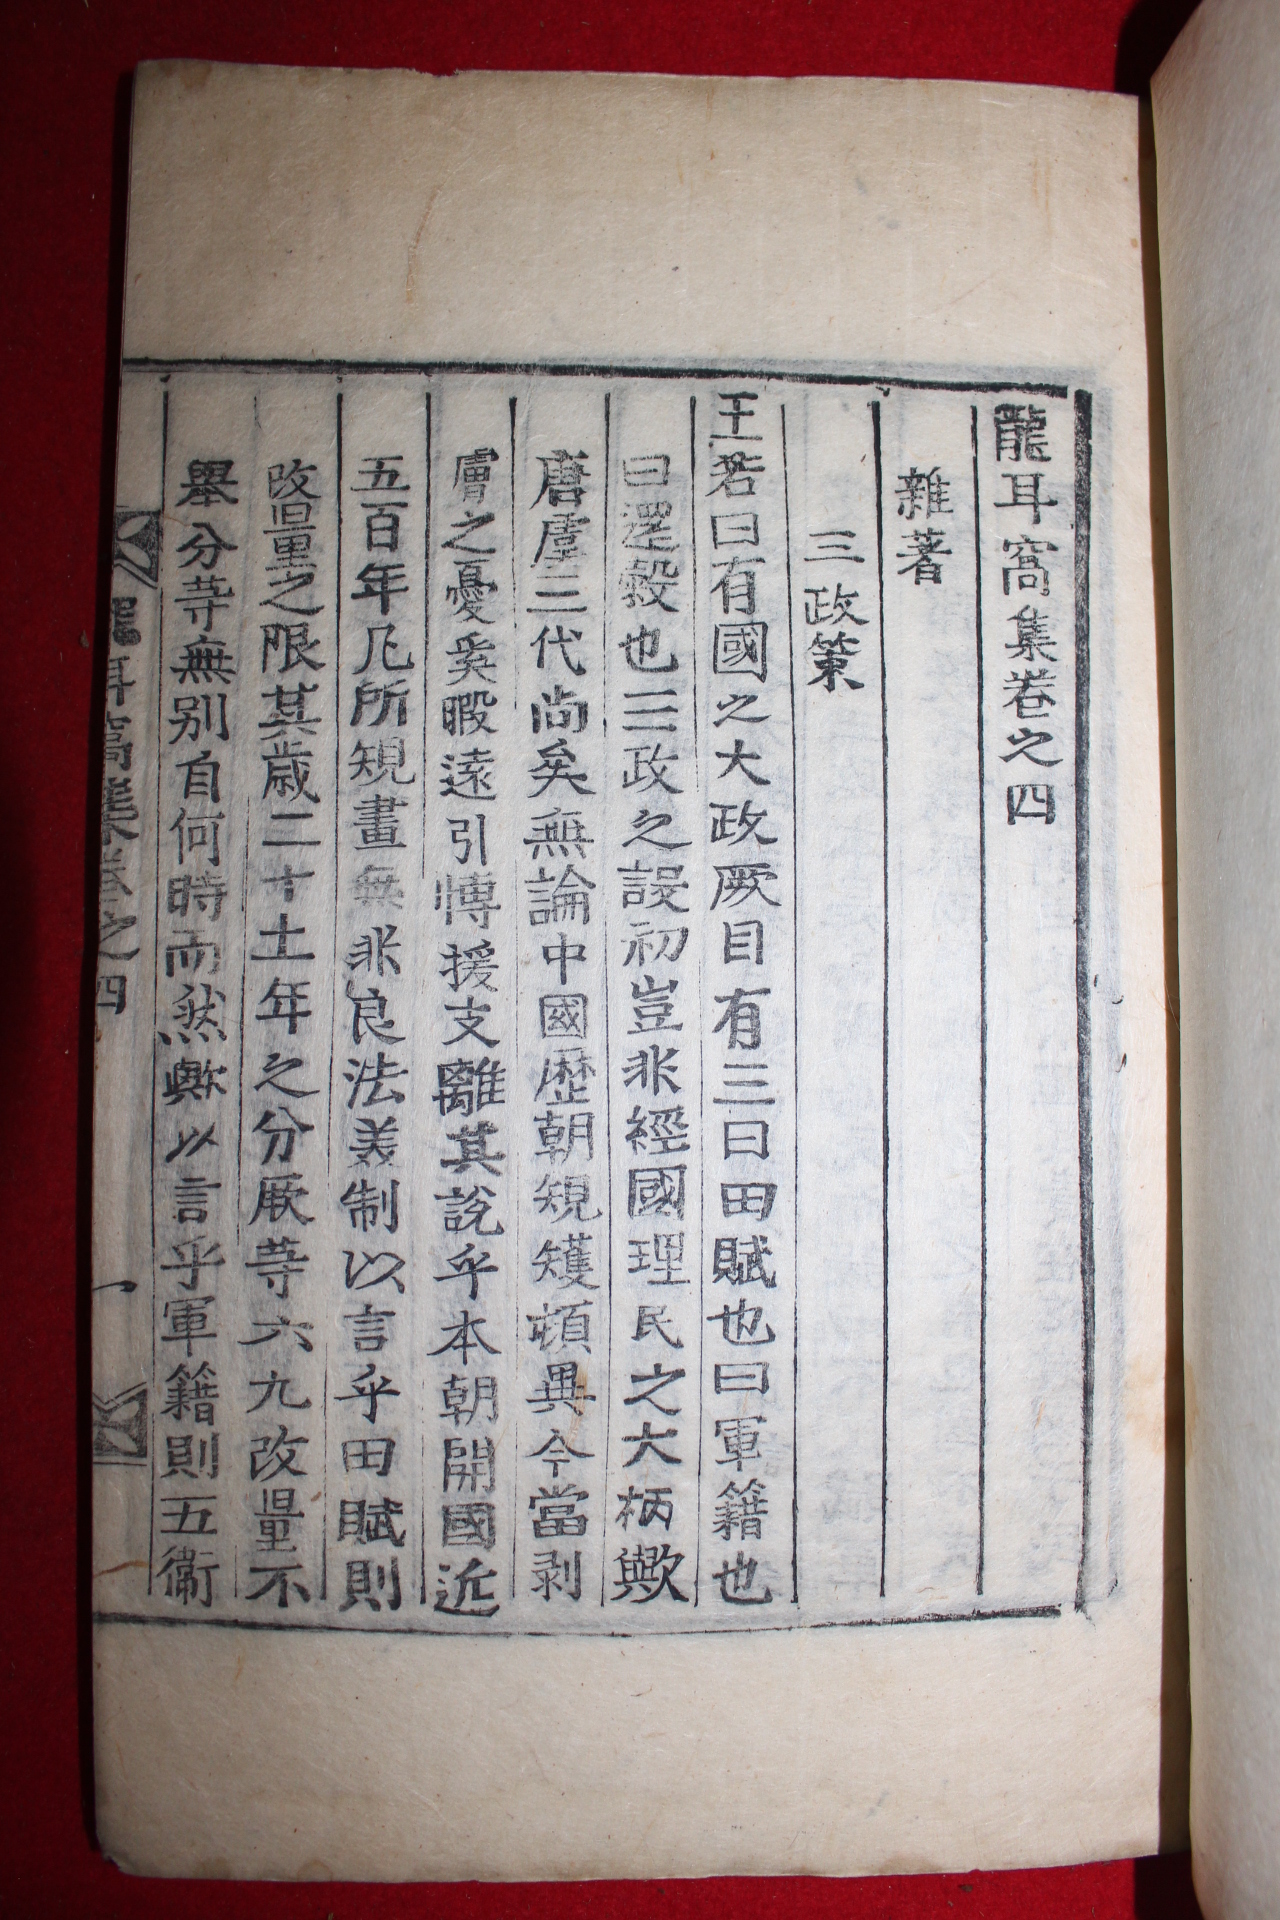 龍耳窩集卷之四
雜著
三政策
王若曰有國之大政厥目有三曰田賦也曰軍籍也
曰還穀也三政之設初豈非經國理民之大柄歟
唐虞三代尙矣無論中國歷朝規矱頓異今當剥
膚之憂奚暇遠引愽援支離其說乎本朝開國近
五百年凡所規畫無非良法義制以言乎田賦則
改量之限其歲二十土年之分厥等六九改量不
舉分等無別自何時而然歟以言乎軍籍則五衛
龍耳窩集卷之四
一